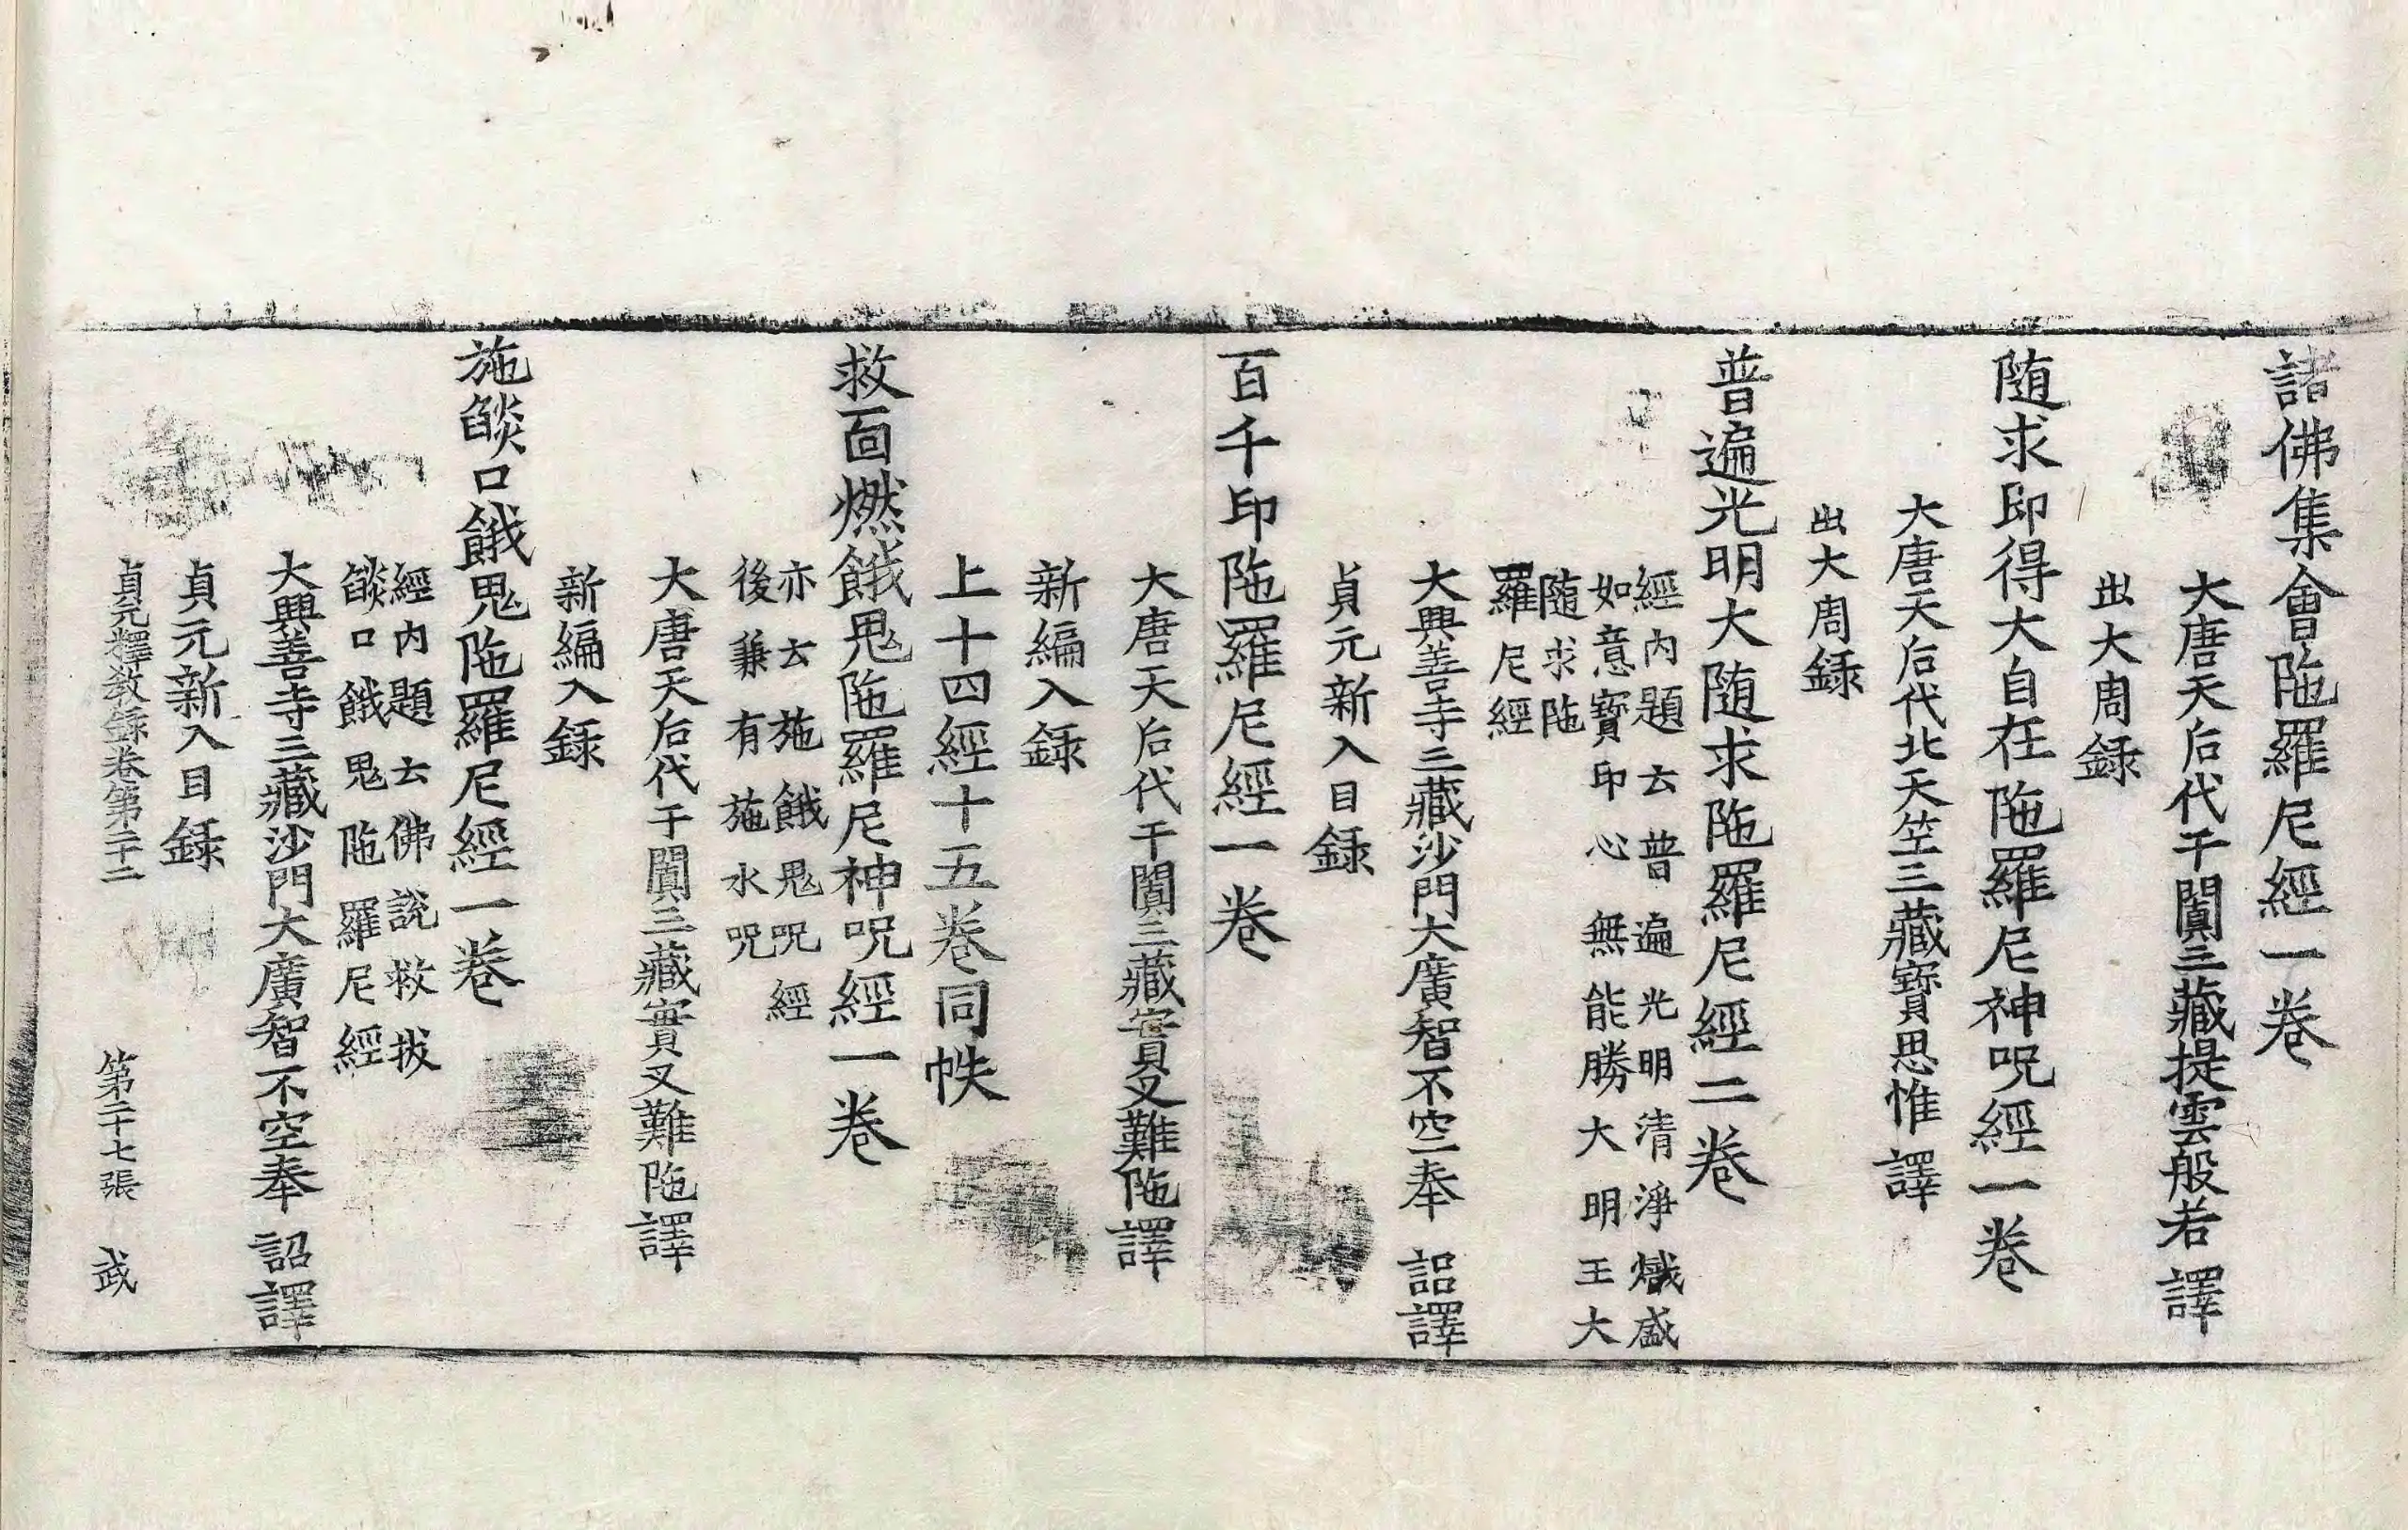 諸佛集會陁羅尼經一卷
大唐天后代于闐三藏提雲般若 譯
出大周録
随求即得大自在陁羅尼神呪經一卷
大唐天后代北天竺三藏寶思惟 譯
出大周録
普遍光明大随求陁羅尼經二卷
經内題云普遍光明清淨熾盛
如意寶印心無能勝大明王大
随求陁
羅尼經
大興善寺三藏沙門大廣智不空奉 詔譯
貞元新入目録
百千印陁羅尼經一卷
大唐天后代于闐三藏實叉難陁譯
新編入録
上十四經十五卷同帙
救面燃餓鬼陁羅尼神呪經一卷
亦云施餓鬼呪經
後兼有施水呪
大唐天后代于闐三藏實叉難陁譯
新編入録
施燄口餓鬼陁羅尼經一卷
經内題云佛說救拔
燄口餓鬼陁羅尼經
大興善寺三藏沙門大廣智不空奉 詔譯
貞元新入目録
貞元釋教録卷第二十二 第二十七張